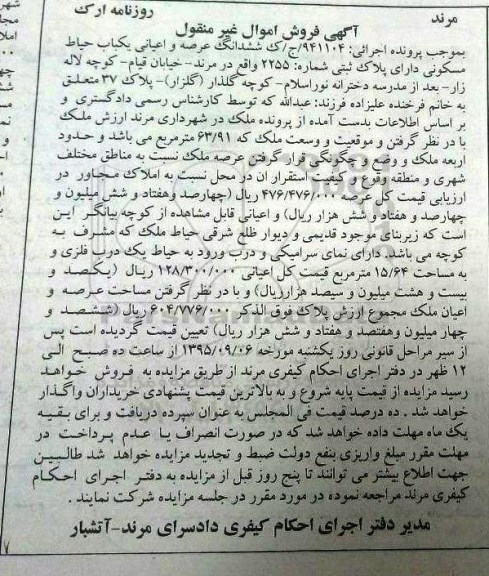 مرند
روزنامه ارک
آگهی فروش اموال غیر منقول
بموجب پرونده اجرائی: ۹۴۱۱۰۴/ج/ک ششدانگ عرصه و اعیانی یکباب حیاط
مسکونی دارای پلاک ثبتی شماره: ۲۲۵۵ واقع در مرند- خیابان قیام- کوچه لاله
زار- بعد از مدرسه دخترانه نوراسلام- کوچه گلذار (گلزار)- پلاک ۳۷ متعلق
به خانم فرخنده علیزاده فرزند: عبداله که توسط کارشناس رسمی دادگستری و
بر اساس اطلاعات بدست آمده از پرونده ملک در شهرداری مرند ارزش ملک
با در نظر گرفتن و موقعیت و وسعت ملک که ۶۳/۹۱ مترمربع می باشد و حدود
اربعه ملک و وضع و چگونگی قرار گرفتن عرصه ملک نسبت به مناطق مختلف
شهری و منطقه وقوع و کیفیت استقرار ان در محل نسبت به املاک مجاور در
ارزیابی قیمت کل عرصه ۴۷۶/۴۷۶/۰۰۰ ریال (چهارصد وهفتاد و شش میلیون و
چهارصد و هفتاد و شش هزار ریال) و اعیانی قابل مشاهده از کوچه بیانگر این
است که زیربنای موجود قدیمی و دیوار ظلم شرقی حیاط ملک که مشرف به
کوچه می باشد. دارای نمای سرامیکی و درب ورود به حیاط یک درب فلزی و
به مساحت ۱۵/۶۴ مترمربع قیمت کل اعیانی ۱۲۸/۳۰۰/۰۰۰ ریال (یکصد و
بیست و هشت میلیون و سیصد هزار ریال) و با در نظر گرفتن مساحت عرصه و
اعیان ملک مجموع ارزش پلاک فوق الذکر ۶۰۴/۷۷۶/۰۰۰ ریال (ششصد و
چهار میلیون وهفتصد و هفتاد و شش هزار ریال) تعیین قیمت گردیده است پس
از سیر مراحل قانونی روز یکشنبه مورخه ۱۳۹۵/۰۹/۰۶ از ساعت ده صبح الی
۱۲ ظهر در دفتر اجرای احکام کیفری مرند از طریق مزایده به فروش خواهد
رسید مزایده از قیمت پایه شروع و به بالاترین قیمت پیشنهادی خریداران واگذار
خواهد شد . ده درصد قیمت فی المجلس به عنوان سپرده دریافت و برای بقیه
یک ماه مهلت داده خواهد شد که در صورت انصراف یا عدم پرداخت در
مهلت مقرر مبلغ واریزی بنفع دولت ضبط و تجدید مزایده خواهد شد طالبین
جهت اطلاع بیشتر می توانند تا پنج روز قبل از مزایده به دفتر اجرای احکام
کیفری مرند مراجعه نموده در مورد مقرر در جلسه مزایده شرکت نمایند .
مدیر دفتر اجرای احکام کیفری دادسرای مرند-آتشبار